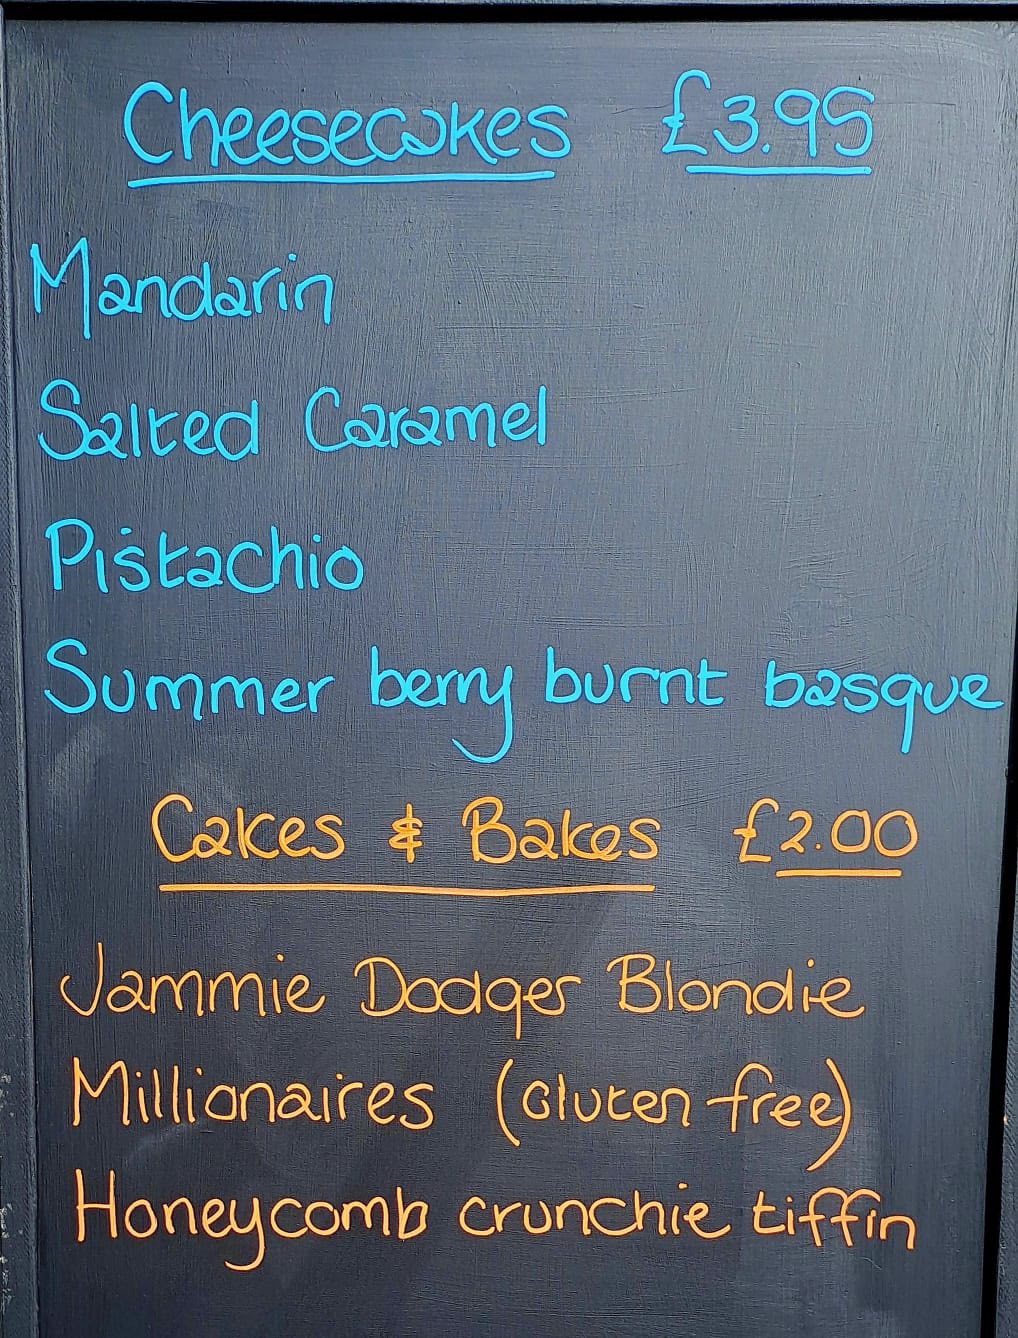 Cheesecakes £3.95
Mandarin
Salted Caramel
Pistachio
Summer berry burnt basque
Cakes & Bakes £2.00
Jammie Dodger Blondie
Millionaires (Gluten free)
Honeycomb crunchie tiffin